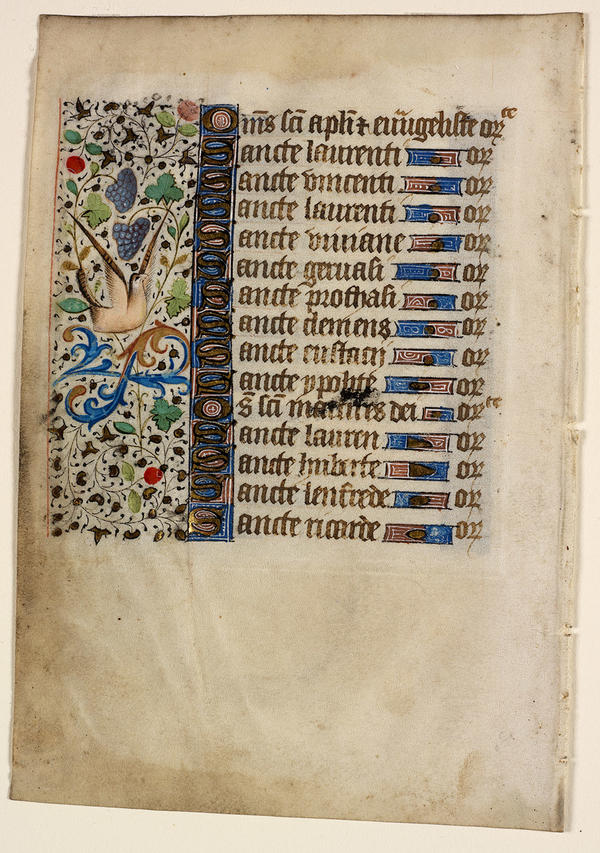 Oms sci apli ⁊ euugeliste orate
Sancte laurenti or
Sancte vincenti or
Sancte laurenti or
Sancte viuiane or
Sancte geruasi or
Sancte prothasi or
Sancte clemens or
Sancte eustaci or
Sancte ypolite or
Os sci martires dei orate
Sancte lauren or
Sancte huberte or
Sancte lenfrede or
Sancte ricarde or